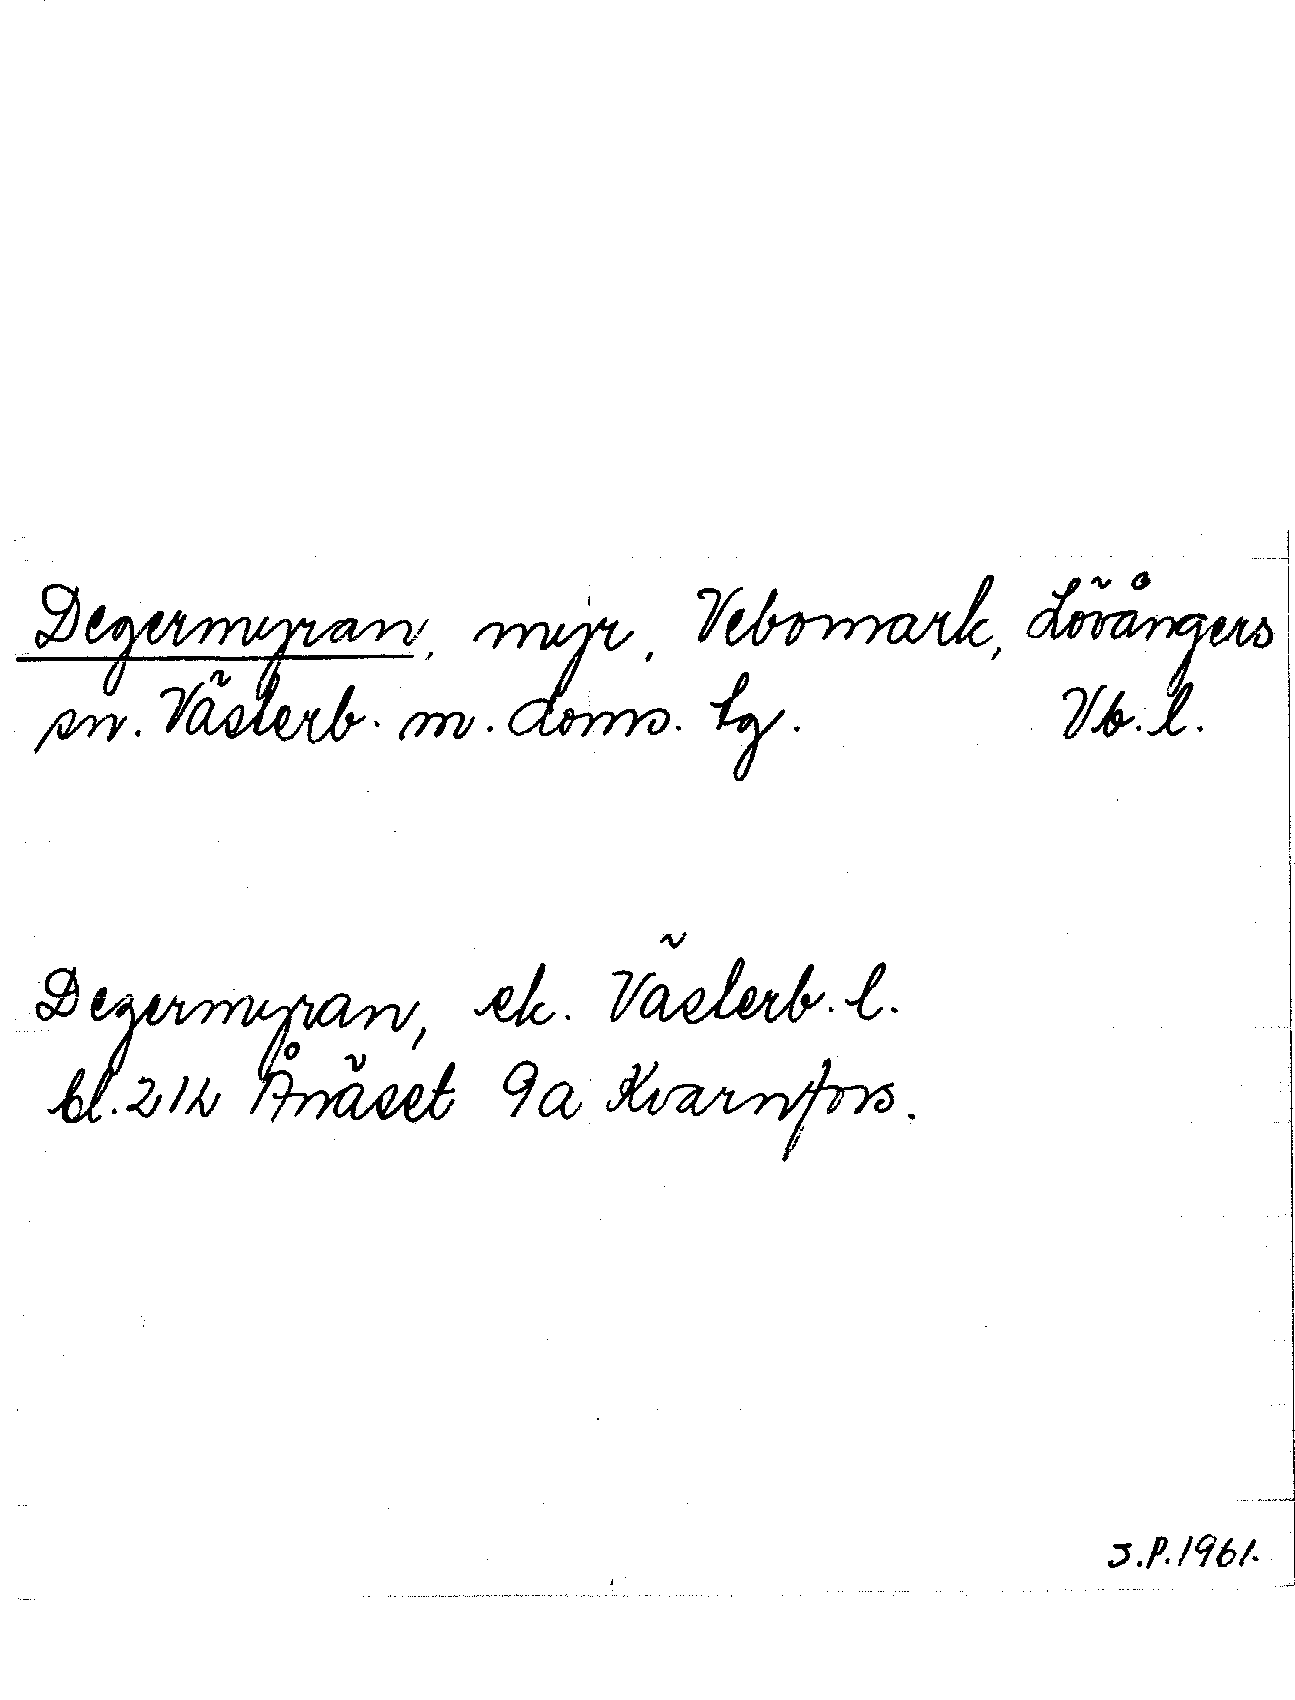 Degermyran, myr, Vebomark, Lövångers
sn. Västerb. m. doms. tg. Vb. l.
Degermyran, ek. Västerb. l.
bl. 21L Ånäset 9a Kvarnfors.
S.P. 1961.